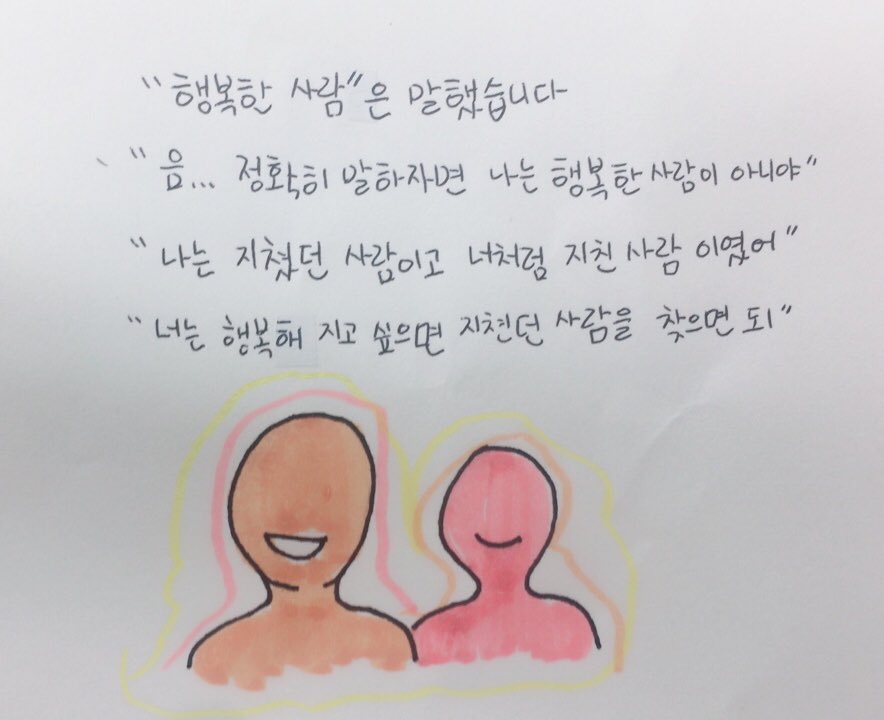 "행복한 사람"은 말했습니다
"음... 정확히 말하자면 나는 행복한 사람이 아니야"
"나는 지쳤던 사람이고 너처럼 지친 사람 이였어"
"너는 행복해 지고 싶으면 지쳤던 사람을 찾으면 되"